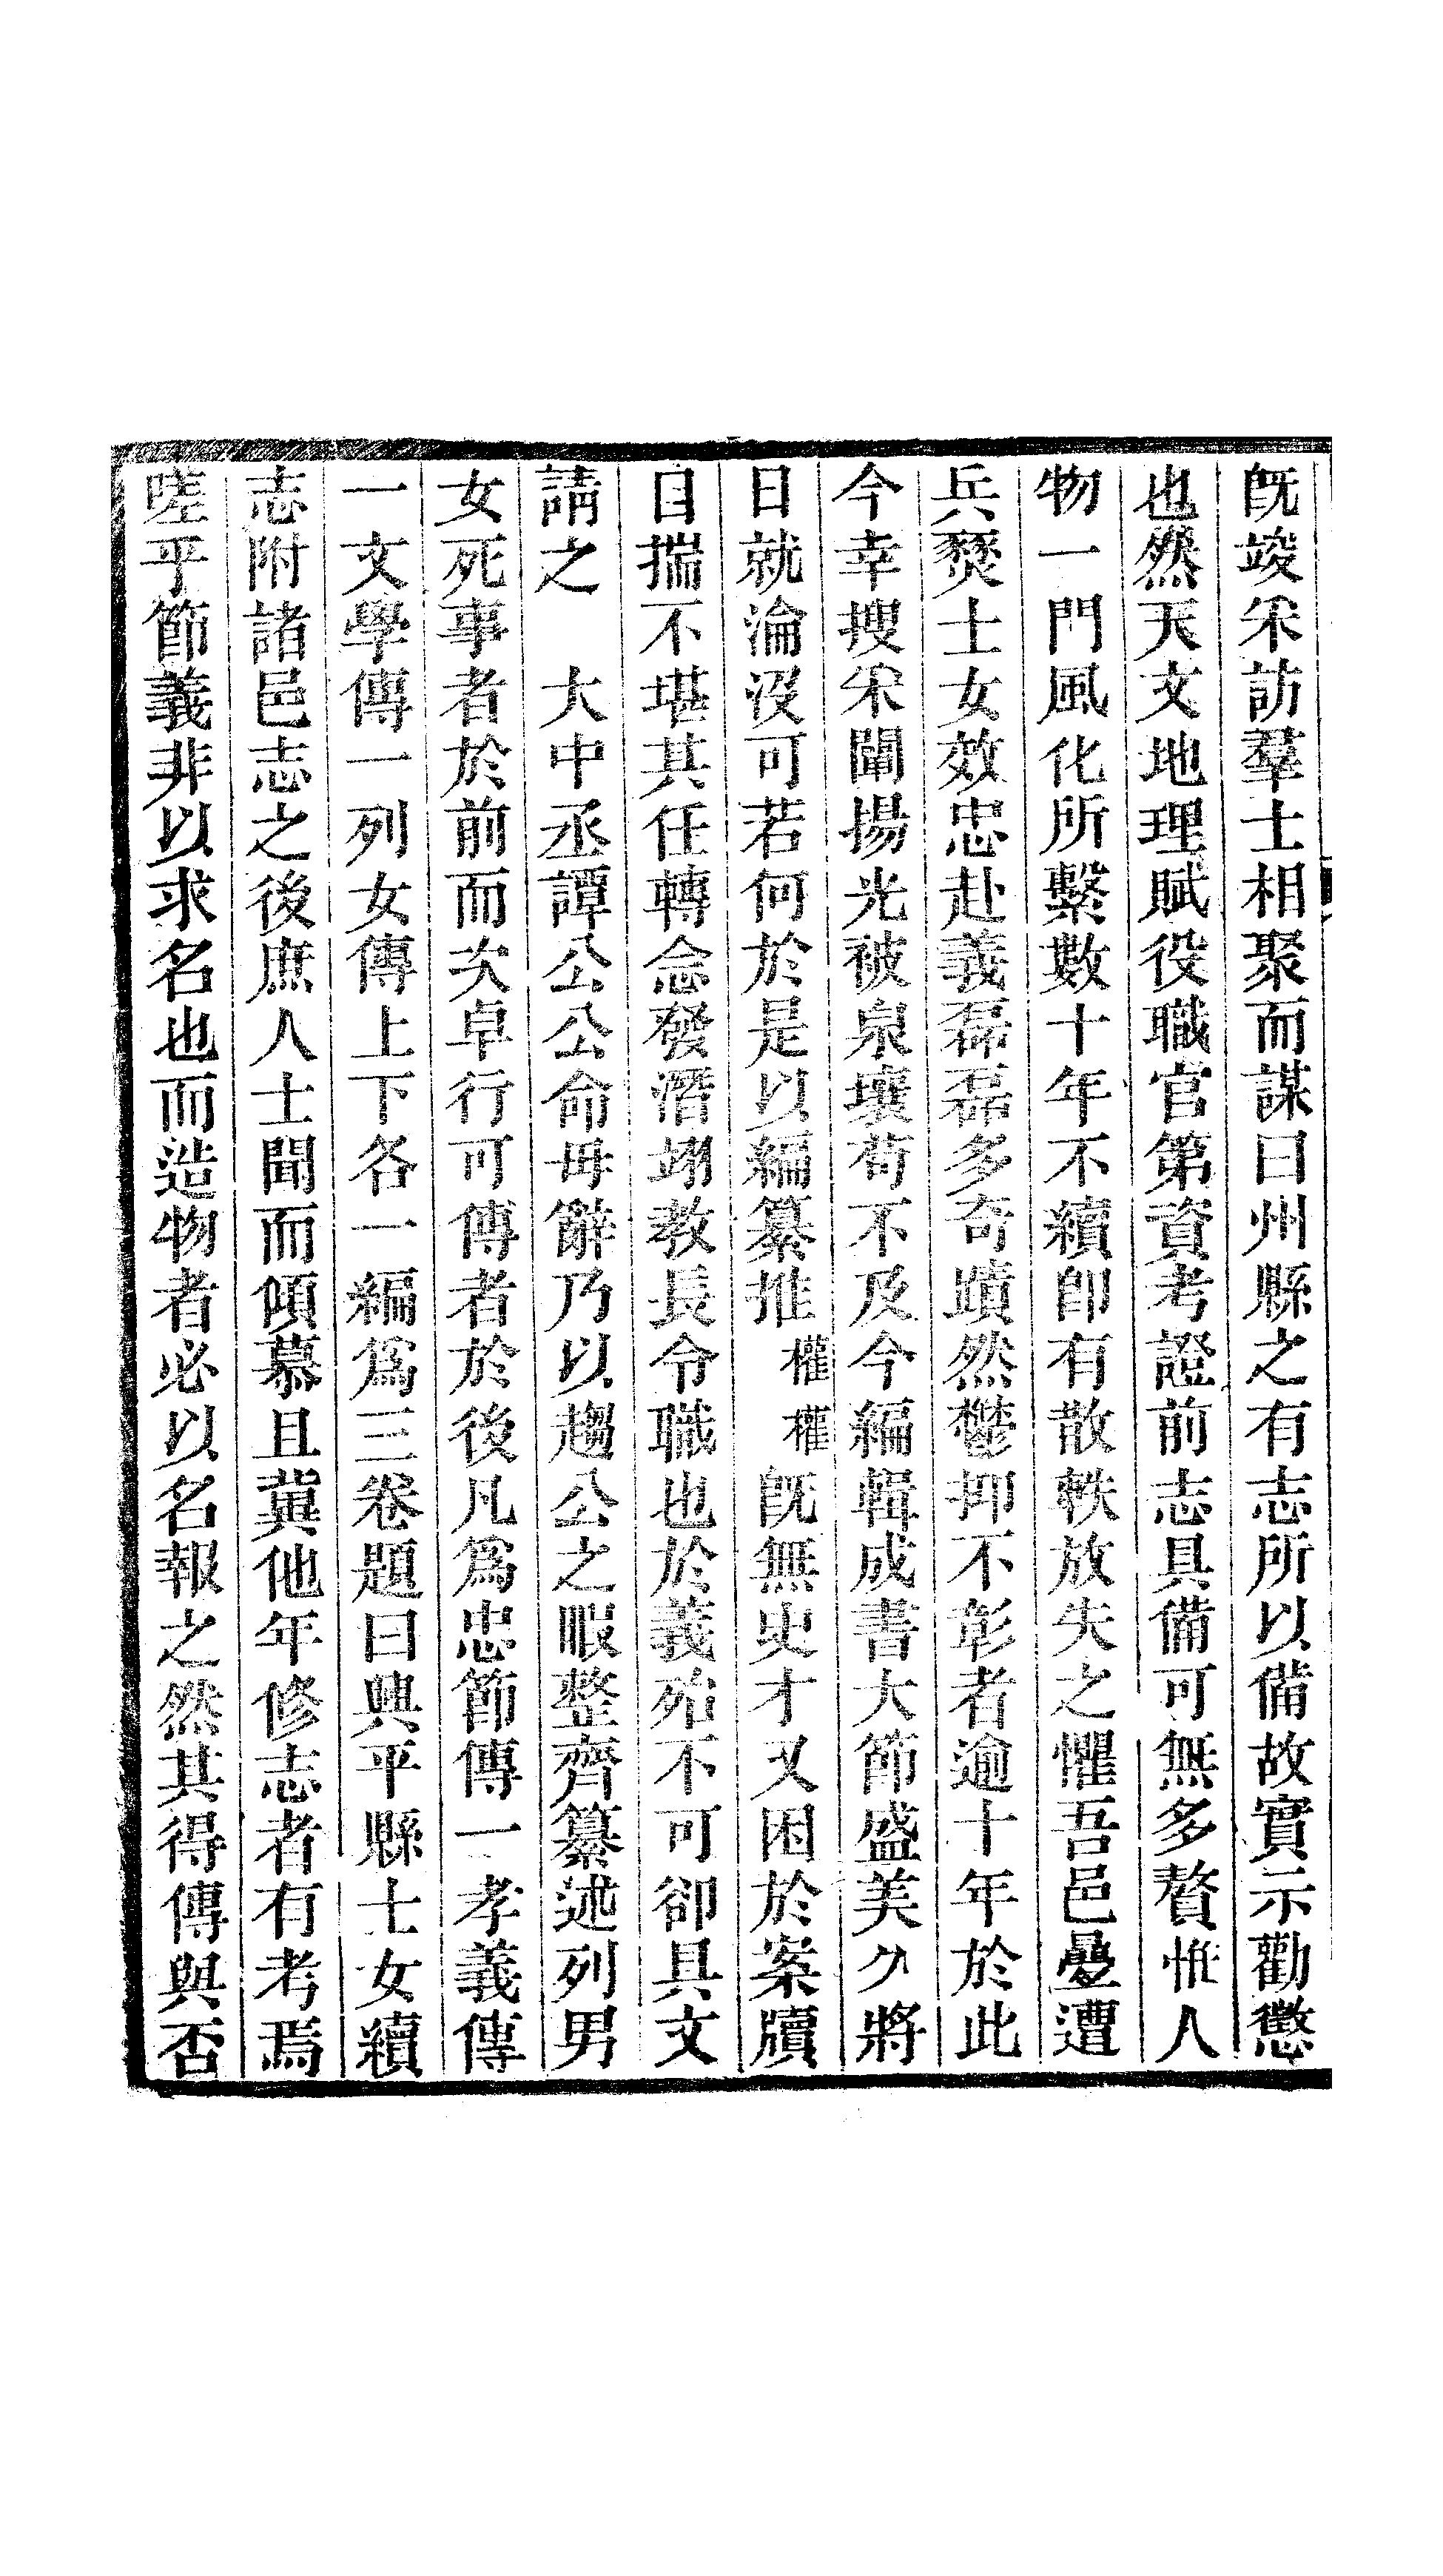 既竣采訪羣士相聚而謀曰州縣之有志所以備故實示勸懲
也然天文地理賦役職官第資考證前志具備可無多贅惟人
物一門風化所繫數十年不續卽有散軼放失之懼吾邑曡遭
兵燹士女效忠赴義磊磊多奇蹟然鬱抑不彰者逾十年於此
今幸搜采闡揚光被泉壤苟不及今編輯成書大節盛美久將
日就淪沒可若何於是以編纂推權權既無史才又困於案牘
自揣不堪其任轉念發潛翊教長令職也於義殆不可卻具文
請之　大中丞譚公公命毋辭乃以趨公之暇整齊纂述列男
女死事者於前而次卓行可傳者於後凡爲忠節傳一孝義傳
一文學傳一列女傳上下各一編爲三卷題曰興平縣士女續
志附諸邑志之後庶人士聞而傾慕且冀他年修志者有考焉
嗟乎節義非以求名也而造物者必以名報之然其得傳與否